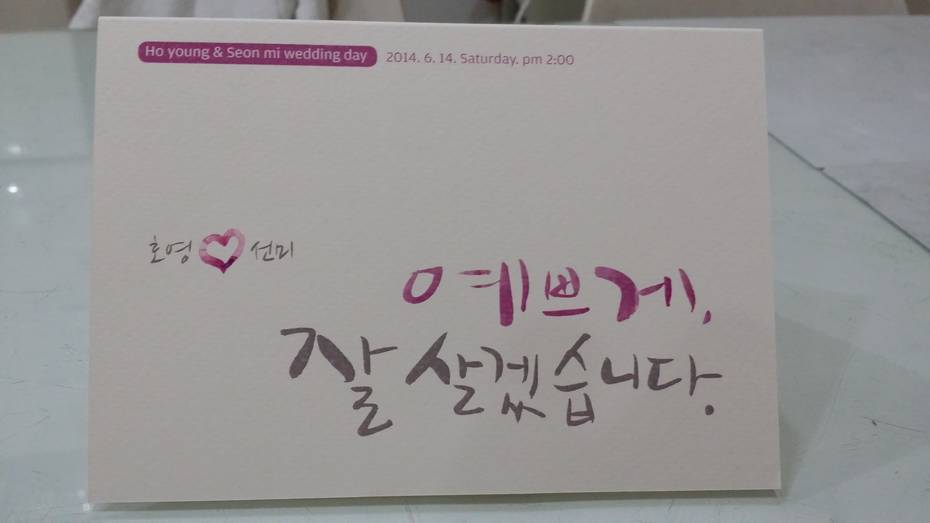 Ho young & Seon mi wedding day 2014. 6. 14. Saturday. pm 2:00
호영 선미
예쁘게,
잘 살겠습니다.